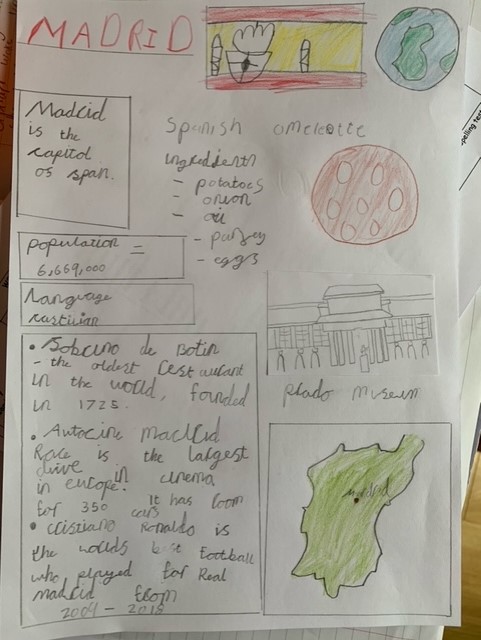 MADRID
Madrid
is the
capitol
os span.
Spanish omelette
ingredients
- potatoes
- onion
- oil
- parsey
- eggs
population =
6,669,000
Language
castilian
• Sobrino de Botin
- the oldest restaurant
in the world, founded
in 1725.
• Autocine Madrid
Race is the largest
drive in cinema
in europe. It has room
for 350 cars
• Cristiano Ronaldo is
the worlds best football
who played for Real
madrid from
2009 - 2018
prado museum
madrid
spelling tes